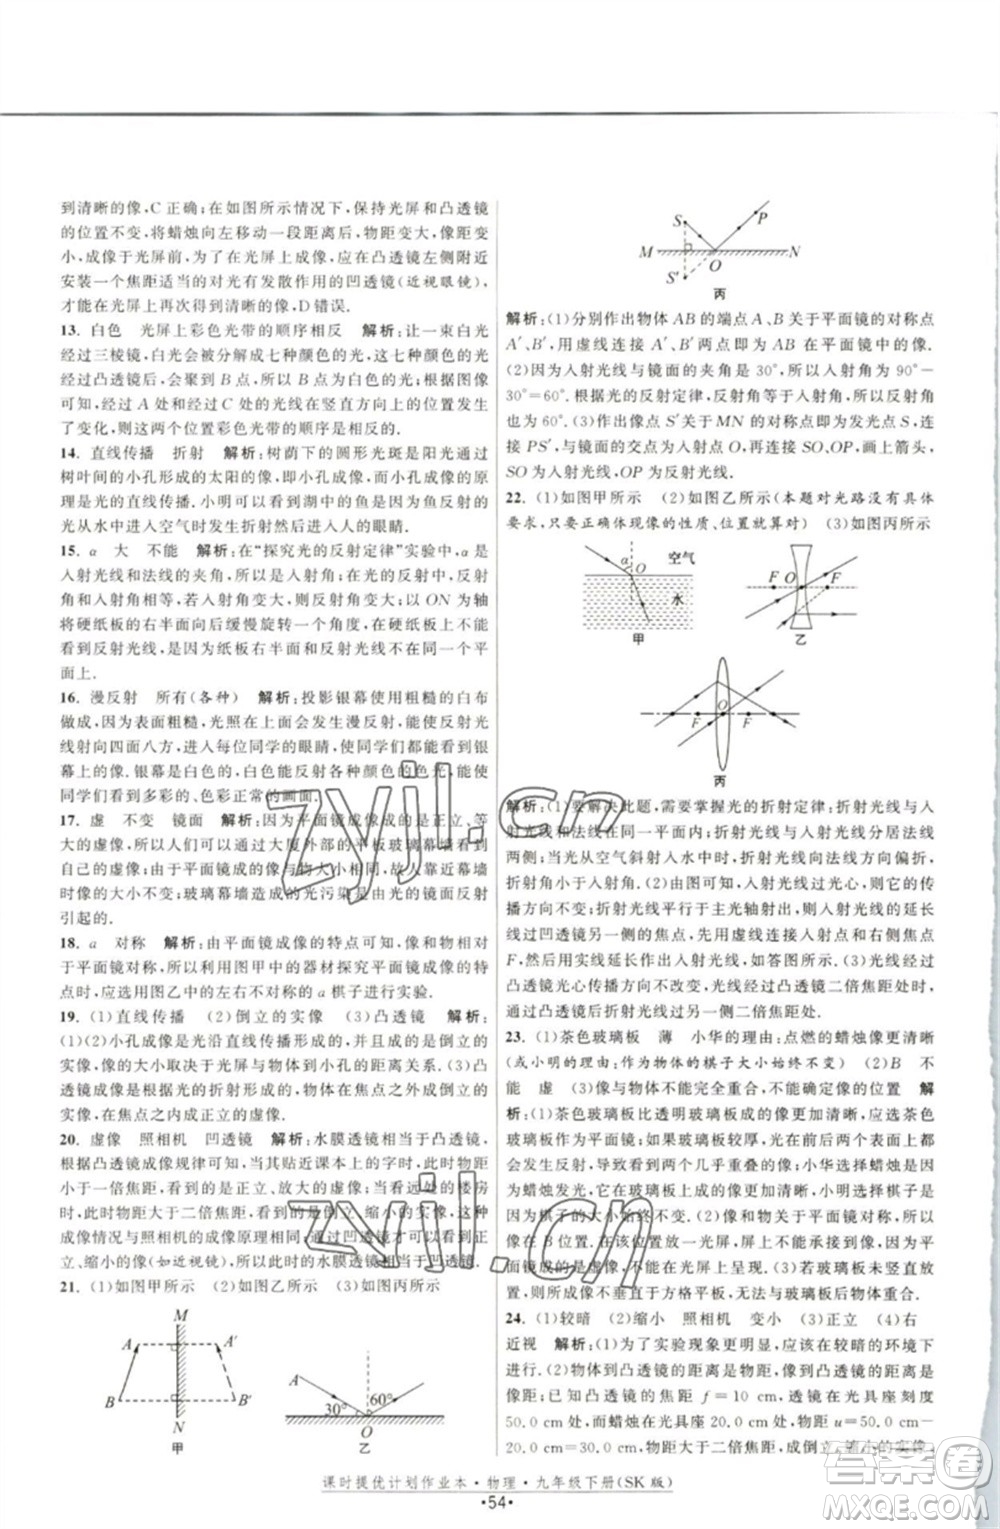 到清晰的像,C 正确;在如图所示情况下,保持光屏和凸透镜
的位置不变,将蜡烛向左移动一段距离后,物距变大,像距变
小,成像于光屏前方,若要在光屏上成像,应在凸透镜左侧附近
安装一个焦距适当的对光有发散作用的凹透镜(近视眼镜),
才能在光屏上再次得到清晰的像,D 错误.
13. 白色 光屏上彩色光带的顺序相反 解析:让一束白光
经过三棱镜,白光会被分解成七种颜色的光,七种颜色的光
再经过凸透镜后会聚在 B 点,B 点为白色的光.根据图像
可知,经过 A 处和经过 C 处的光线在竖直方向上的位置发生
了变化,则这两个位置彩色光带的顺序是相反的.
14. 直线传播 折射 解析:树荫下的圆形光斑是阳光经过
树叶间的小孔形成的太阳的像,小孔成像的原理是光的直线传播
原理是光的直线传播.我们看到湖中的鱼是鱼反射的
光从水中进入空气时发生折射然后进入人的眼睛.
15. α 大 不能 解析:在“探究光的反射定律”实验中,α 是
入射光线和法线的夹角,所以是入射角;在光的反射中,反射
角和入射角相等,若入射角变大,则反射角变大;以 ON 为轴
将硬纸板的右半部分向后缓慢旋转,在硬纸板上不能
看到反射光线,因为纸板的右半平面与入射光线不在同一平
面上.
16. 漫反射 所有(各种) 解析:投影银幕使用粗糙的白布
做成,因为表面粗糙,光照在上面会发生漫反射,能使反射光
线射向四面八方,进入每位同学的眼睛,使每位同学都看到银
幕上的像.银幕是白色的,白色能反射各种颜色的色光,能使
同学们看到多彩的、色彩正常的画面.
17. 虚 不变 镜面 解析:因为平面镜成像成的是正立、等
大的虚像,所以通过大厦外部的平板玻璃幕墙看到的是汽车的
虚像;由于平面镜所成的像与物等大,所以在汽车靠近幕墙
时像的大小不变;玻璃幕墙造成的光污染是光的镜面反射
引起的.
18. a 对称 解析:由平面镜成像的特点可知,像和物相对
于平面镜对称,所以利用图甲中的器材探究平面镜成像的特
点时,应选用图乙中的左右不对称的 a 棋子进行实验.
19. (1)直线传播 (2)倒立的实像 (3)凸透镜 解析:
(1)(2)小孔成像是光沿直线传播形成的,成的是倒立的实
像,像的大小取决于光屏到小孔的距离与物距的关系;(3)凸
透镜成像是光的折射形成的,物体在焦点之外成倒立的
实像,在焦点之内成正立的虚像.
20. 虚像 照相机 凹透镜 解析:水膜透镜相当于凸透镜,
根据凸透镜成像规律可知,当其贴近课本上的字时,此时物距
小于一倍焦距,成的是正立、放大的虚像;当看远处的楼房
时,此时物距大于二倍焦距,成的是倒立、缩小的实像,这种
成像情况与照相机的成像原理相同;若此时看到的是正
立、缩小的像(如近视镜),则水膜透镜相当于凹透镜.
21. (1)如图甲所示 (2)如图乙所示 (3)如图丙所示
M
A A′
B B′
N
甲
A
30° 60°
O
乙
S P
M N
S′ O
丙
解析:(1)分别作出物体 AB 的端点 A、B 关于平面镜的对称点
A′、B′,用虚线连接 A′、B′两点即为 AB 在平面镜中的像.
(2)因为入射光线与镜面的夹角是 30°,所以入射角为 90°−
30°=60°.根据光的反射定律,反射角等于入射角,即反射角
也为 60°.(3)作出像点 S′关于 MN 的对称点即为发光点 S,连
接 PS′,与镜面的交点为入射点 O,再连接 SO、OP,画上箭头,
SO 为入射光线,OP 为反射光线.
22. (1)如图甲所示 (2)如图乙所示(本题对光路没有具体
要求,只要正确体现像的性质、位置就算对) (3)如图丙所示
α 空气
O
水
甲
F O F
乙
F F O
丙
解析:(1)要解决此题,需要掌握光的折射定律:折射光线与入
射光线和法线在同一平面内;折射光线与入射光线分居法线
两侧;当光从空气斜射入水中时,折射光线向法线方向偏折,
折射角小于入射角.(2)由图乙可知,一条入射光线过光心,其传
播方向不变;折射光线平行于主光轴射出,则入射光线的延长线
过凹透镜另一侧的焦点,先用虚线连接入射点与右侧焦点
F,然后在虚线左侧作出入射光线.
(3)由图丙可知,过光心的光线方向不改变,两光线相交处为
凸透镜二倍焦距处,故入射光线交于另一侧二倍焦距处.
23. (1)茶色玻璃板 薄 小华的理由:点燃的蜡烛像更清晰
(或小明的理由:作为物体的棋子大小始终不变) (2)B 不
能 虚 (3)像与物体不能完全重合,不能确定像的位置 解
析:(1)茶色玻璃板比透明玻璃板成像更清晰,应选择茶色
玻璃板作为平面镜.如果玻璃板较厚,玻璃板的两个面
都能成像,会看到两个几乎重叠的像;小华选择蜡烛是因
为点燃的蜡烛在玻璃板上成的像更加清晰,小明选择棋子是
因为棋子的大小始终不变.(2)像和物关于平面镜对称,所以
像在 B 位置.在 B 位置放一光屏,光屏上不能承接到像,说明平面镜成的像是
虚像.(3)如果玻璃板没有垂直于方格平板,无法与物体重合.
24. (1)较暗 (2)缩小 照相机 变小 (3)正立 (4)右
近视 解析:(1)为了实验现象更明显,应该在较暗的环境下
进行.(2)物体到凸透镜的距离是物距,像到凸透镜的距离是像
距;已知凸透镜的焦距 f=10 cm,凸透镜在光具座刻度
50.0 cm 处,而蜡烛在光具座 20.0 cm 处,物距 u=50.0 cm−
20.0 cm=30.0 cm,物距大于二倍焦距,成倒立、缩小的实像,
课时提优计划作业本·物理·九年级下册(SK 版)
·54·
zyjl.cn
zyjl.cn
答案圈
MXQE.COM